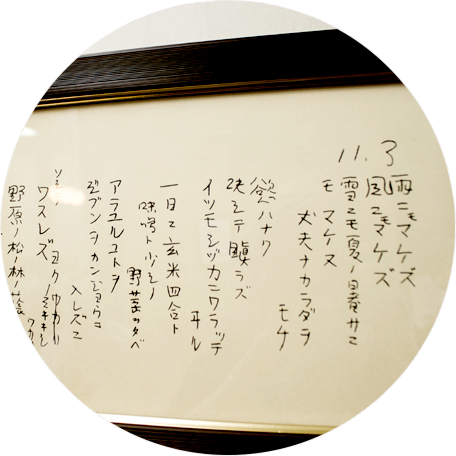 11.3
雨ニモマケズ
風ニモマケズ
雪ニモ夏ノ暑サニ
モマケヌ
丈夫ナカラダヲ
モチ
慾ハナク
決シテ瞋ラズ
イツモシヅカニワラッテ
ヰル
一日ニ玄米四合ト
味噌ト少シノ
野菜ヲタベ
アラユルコトヲ
ジブンヲカンジョウニ
入レズニ
ワスレズ
野原ノ松ノ林ノ蔭